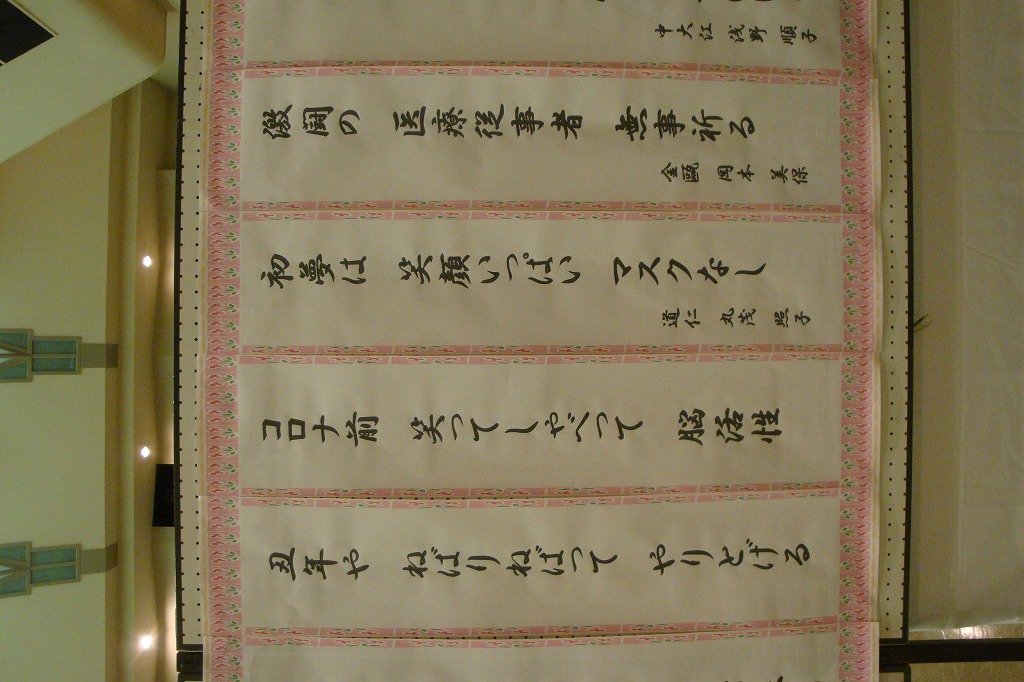 中大江 浅野 順子
激闘の 医療従事者 無事祈る
金甌 岡本 美保
初夢は 笑顔いっぱい マスクなし
道仁 丸茂 照子
コロナ前 笑ってしゃべって 脳活性
丑年や ねばりねばって やりとげる